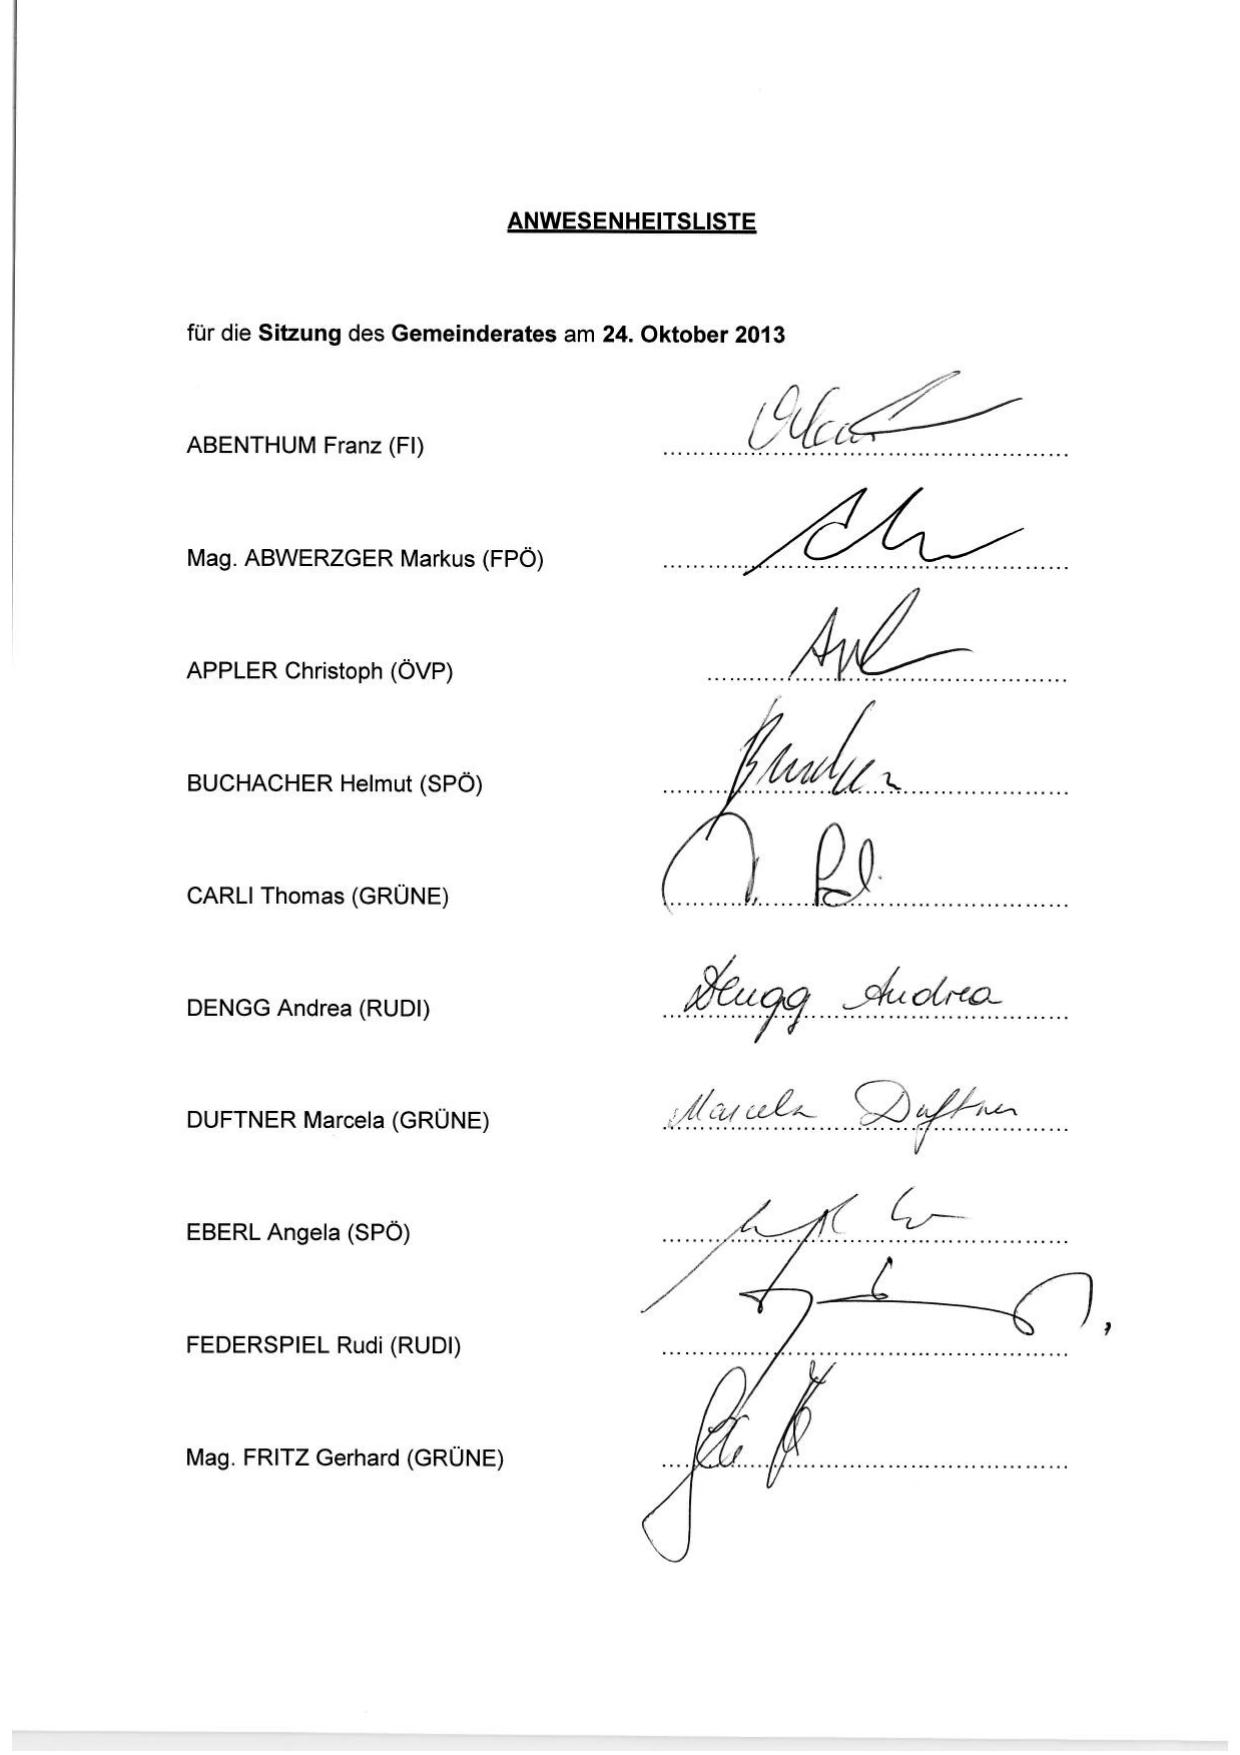 ANWESENHEITSLISTE
für die Sitzung des Gemeinderates am 24. Oktober 2013
ABENTHUM Franz (FI)
Mag. ABWERZGER Markus (FPÖ)
APPLER Christoph (ÖVP)
BUCHACHER Helmut (SPÖ)
CARLI Thomas (GRÜNE)
DENGG Andrea (RUDI) Dengg Andrea
DUFTNER Marcela (GRÜNE) Marcela Duftner
EBERL Angela (SPÖ)
FEDERSPIEL Rudi (RUDI)
Mag. FRITZ Gerhard (GRÜNE)